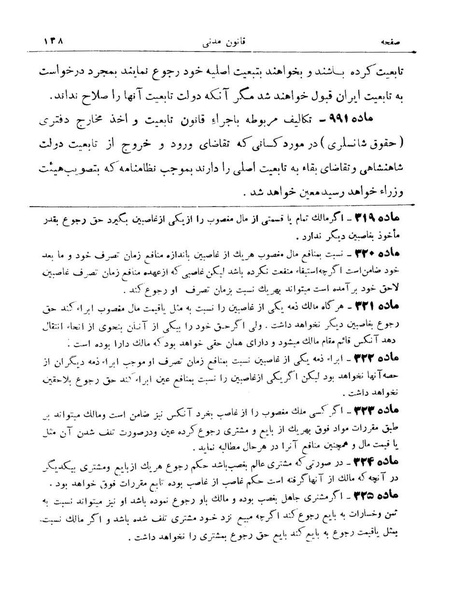 صفحه قانون مدنی ۱۳۸
تابعیت کرده باشند و بخواهند بتبعیت اصلیه خود رجوع نمایند بمجرد درخواست
به تابعیت ایران قبول خواهند شد مگر آنکه دولت تابعیت آنها را صلاح نداند.
ماده ۹۹۱ - تکالیف مربوطه باجراء قانون تابعیت و اخذ مخارج دفتری
(حقوق شانسلری) در مورد کسانی که تقاضای ورود و خروج از تابعیت دولت
شاهنشاهی و تقاضای بقاء به تابعیت اصلی را دارند بموجب نظامنامه که بتصویب هیئت
وزراء خواهد رسید معین خواهد شد.
ماده ۳۱۹ - اگر مالک تمام یا قسمتی از مال مغصوب را از یکی از غاصبین بگیرد حق رجوع بقدر
مأخوذ بغاصبین دیگر ندارد.
ماده ۳۲۰ - نسبت بمنافع مال مغصوب هریک از غاصبین باندازه منافع زمان تصرف خود و ما بعد
خود ضامن است اگرچه استیفاء منفعت نکرده باشد لیکن غاصبی که از عهده منافع زمان تصرف غاصبین
لاحق خود بر آمده است میتواند بهریک نسبت بزمان تصرف او رجوع کند.
ماده ۳۲۱ - هر گاه مالک ذمه یکی از غاصبین را نسبت به مثل یاقیمت مال مغصوب ابراء کند حق
رجوع بغاصبین دیگر نخواهد داشت. ولی اگر حق خود را بیکی از آنان بنحوی از انحاء انتقال
دهد آنکس قائم مقام مالک میشود و دارای همان حقی خواهد بود که مالک دارا بوده است.
ماده ۳۲۲ - ابراء ذمه یکی از غاصبین نسبت بمنافع زمان تصرف او موجب ابراء ذمه دیگران از
حصه آنها نخواهد بود لیکن اگر یکی از غاصبین را نسبت بمنافع عین ابراء کند حق رجوع بلاحقین
نخواهد داشت.
ماده ۳۲۳ - اگر کسی ملک مغصوب را از غاصب بخرد آنکس نیز ضامن است ومالک میتواند بر
طبق مقررات مواد فوق بهریک از بایع و مشتری رجوع کرده عین ودرصورت تلف شدن آن مثل
یا قیمت مال و همچنین منافع آنرا در هرحال مطالبه نماید.
ماده ۳۲۴ - در صورتی که مشتری عالم بغصب باشد حکم رجوع هریک از بایع ومشتری بیکدیگر
در آنچه که مالک از آنها گرفته است حکم غاصب از غاصب بوده تابع مقررات فوق خواهد بود.
ماده ۳۲۵ - اگر مشتری جاهل بغصب بوده و مالک باو رجوع نموده باشد او نیز میتواند نسبت به
ثمن وخسارات به بایع رجوع کند اگرچه مبیع نزد خود مشتری تلف شده باشد و اگر مالک نسبت
بمثل یاقیمت رجوع به بایع کند بایع حق رجوع بمشتری را نخواهد داشت.